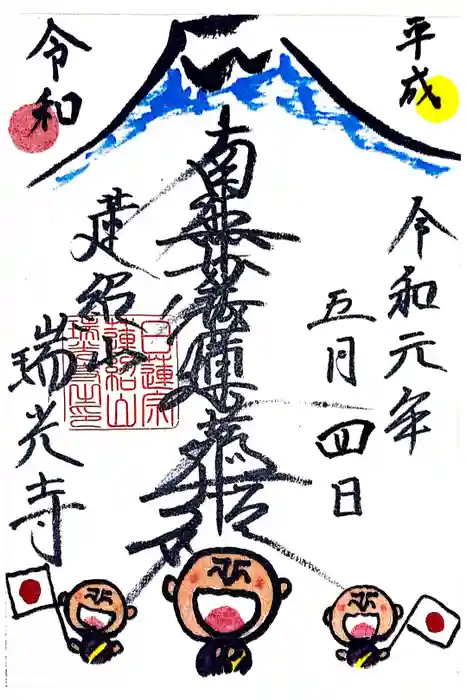 平成
令和元年
五月四日
南無妙法蓮華経
令和
蓮紹山
瑞光寺
日蓮宗
蓮紹山
瑞光寺印